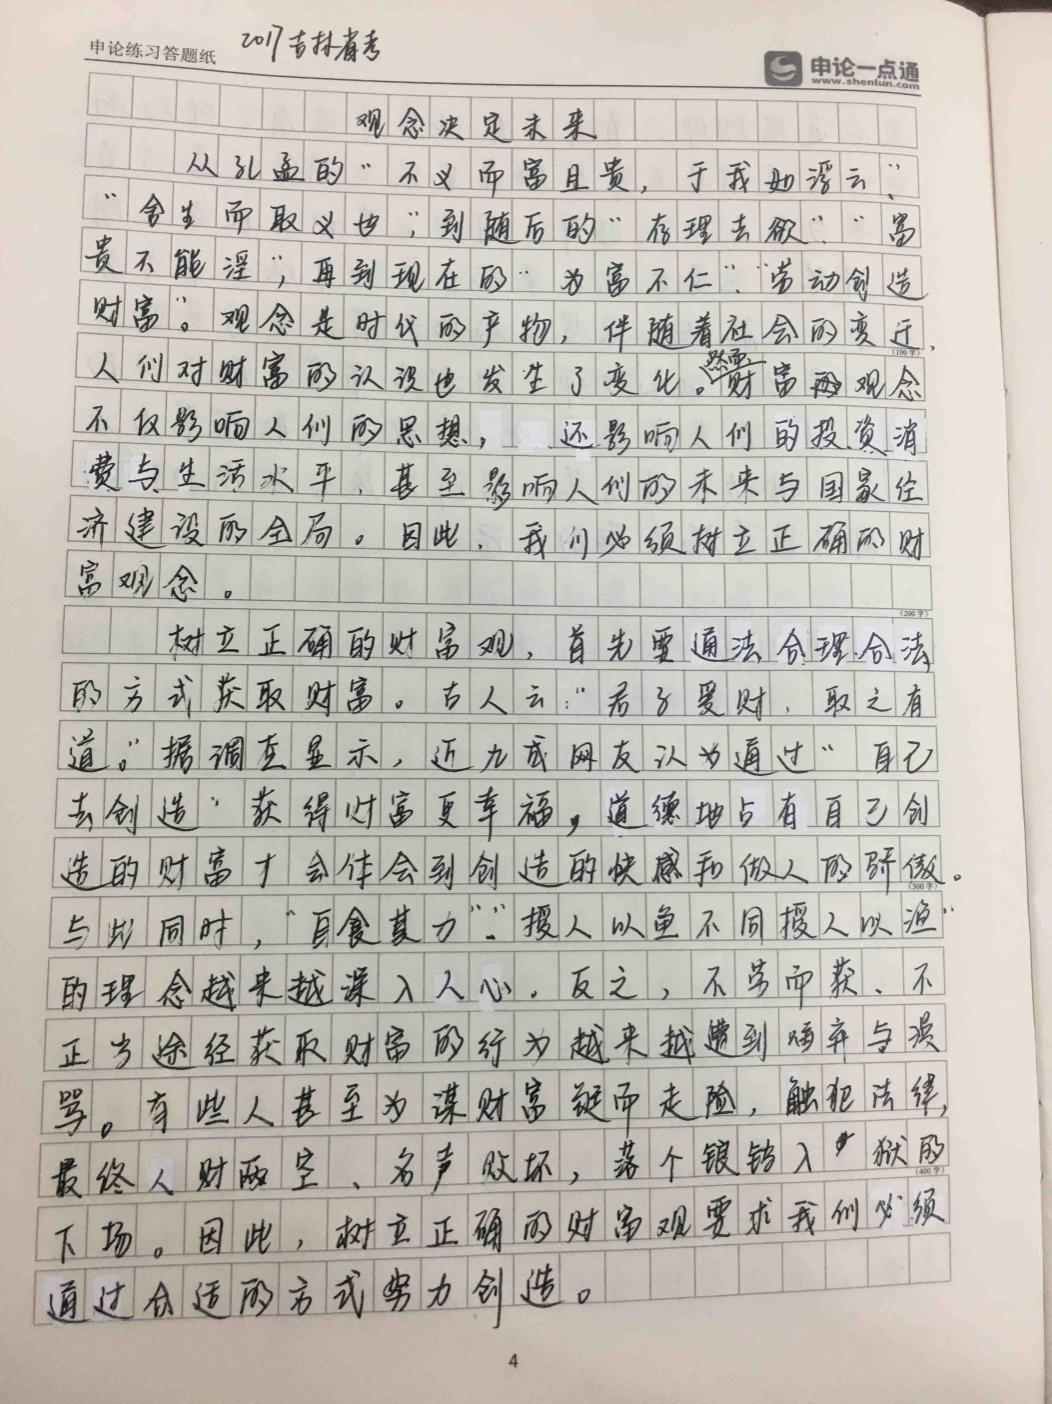 申论练习答题纸 2017吉林省考
申论一点通
www.shenlun.com
观念决定未来
从孔孟的“不义而富且贵，于我如浮云”、
“舍生而取义也”，到随后的“存理去欲”“富
贵不能淫”，再到现在的“为富不仁”、“劳动创造
财富”。观念是时代的产物，伴随着社会的变迁，
(100字)
人们对财富的认识也发生了变化。然而财富观念
不仅影响人们的思想，还影响人们的投资消
费与生活水平，甚至影响人们的未来与国家经
济建设的全局。因此，我们必须树立正确的财
富观念。
(200字)
树立正确的财富观，首先要通法合理合法
的方式获取财富。古人云：“君子爱财，取之有
道。”据调查显示，近九成网友认为通过“自己
去创造”获得财富更幸福，道德地占有自己创
造的财富才会体会到创造的快感和做人的骄傲。
(300字)
与此同时，“自食其力”“授人以鱼不同授人以渔”
的理念越来越深入人心。反之，不劳而获、不
正当途经获取财富的行为越来越遭到唾弃与漫
骂。有些人甚至为谋财富铤而走险，触犯法律，
最终人财两空、名声败坏，落个锒铛入狱的
(400字)
下场。因此，树立正确的财富观要求我们必须
通过合适的方式努力创造。
4